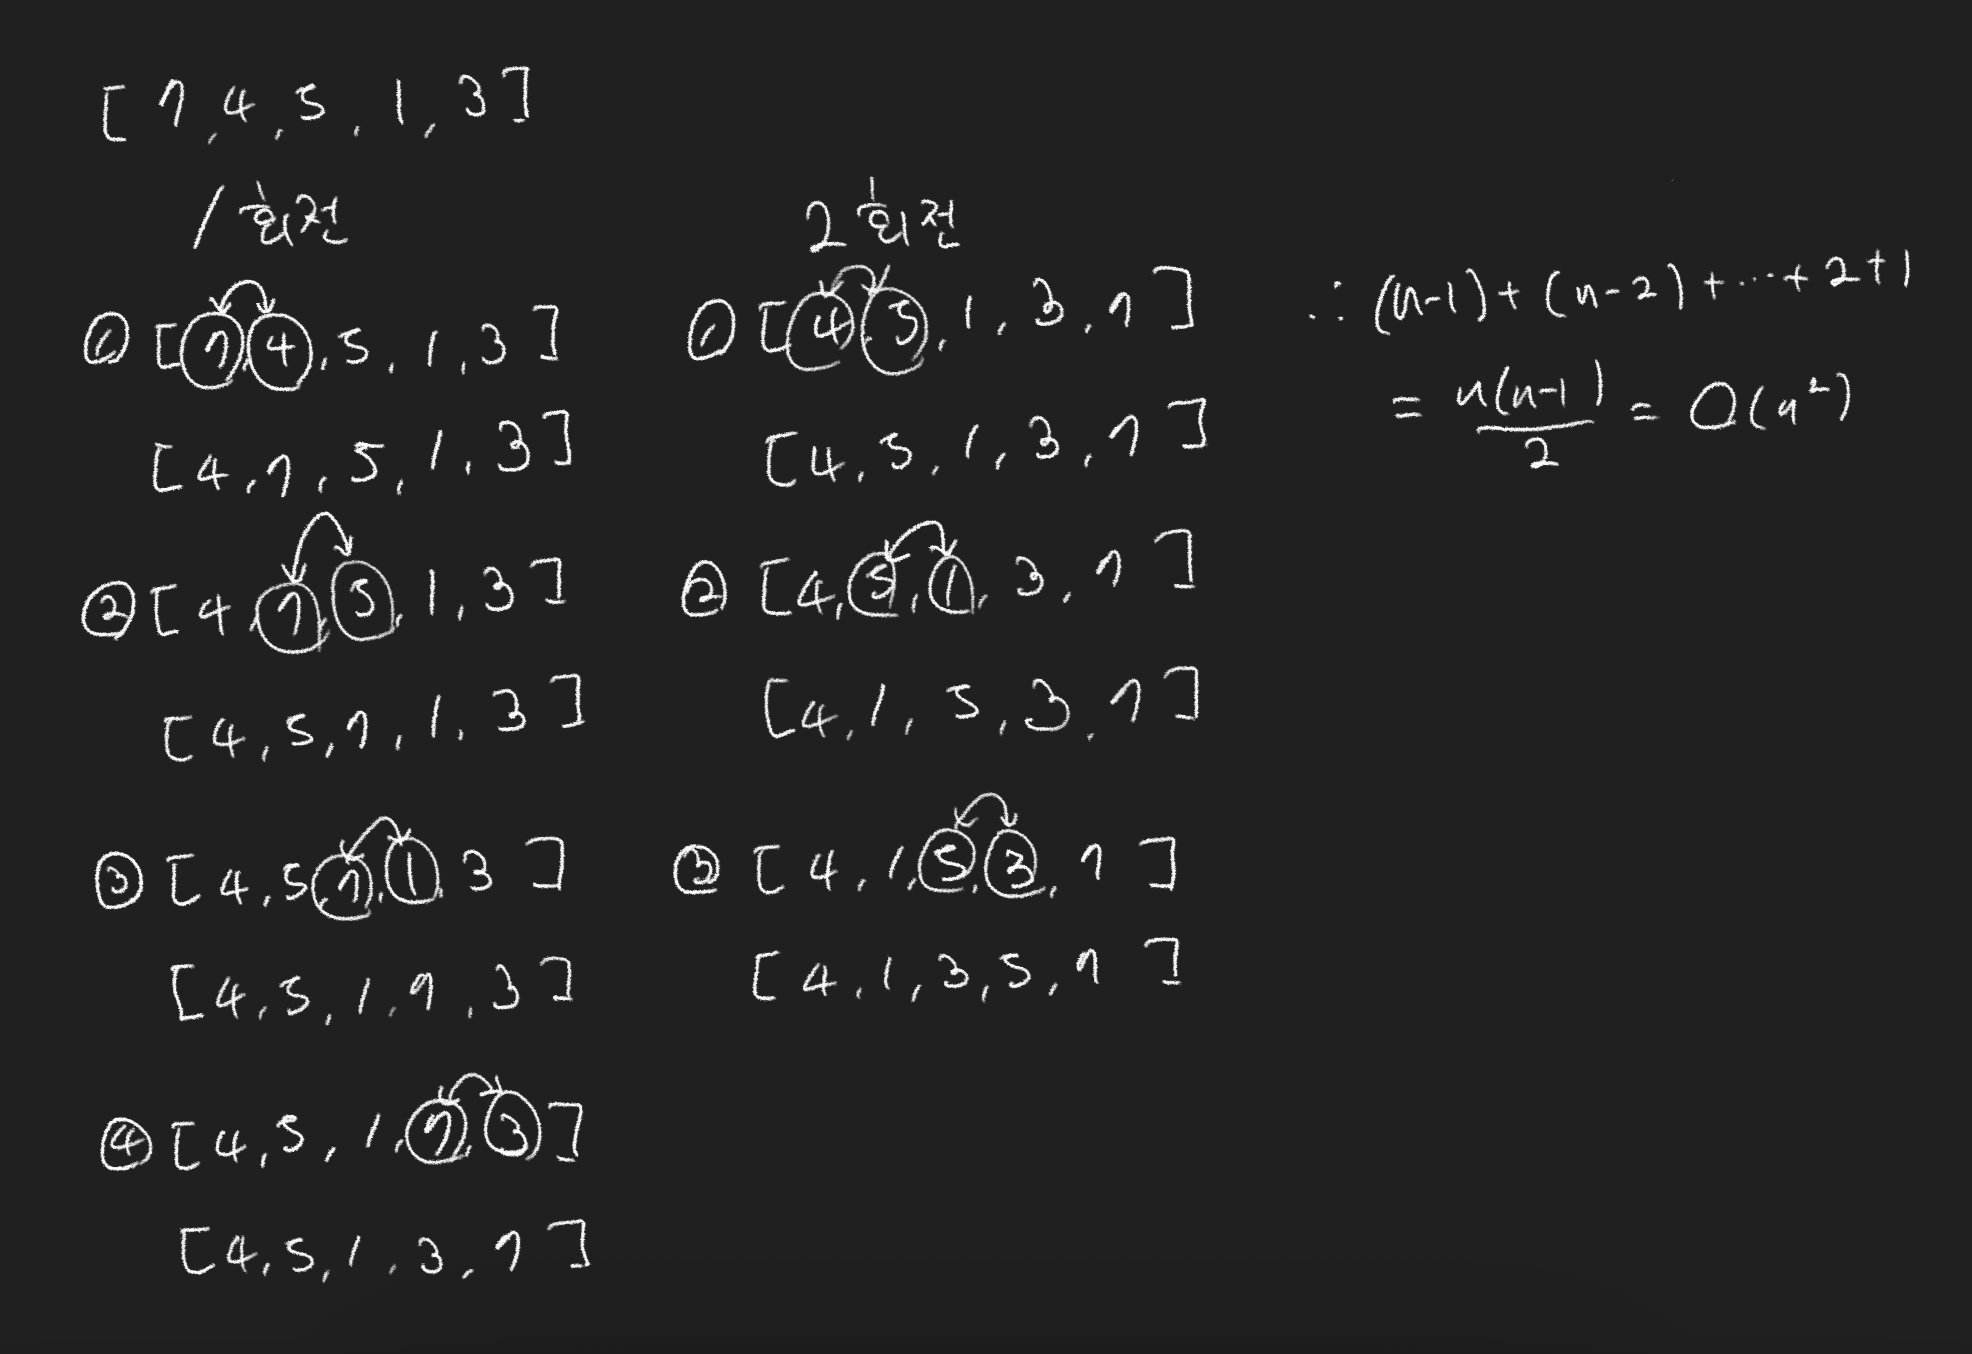 [7, 4, 5, 1, 3]
1회전
① [7, 4, 5, 1, 3]
[4, 7, 5, 1, 3]
② [4, 7, 5, 1, 3]
[4, 5, 7, 1, 3]
③ [4, 5, 7, 1, 3]
[4, 5, 1, 7, 3]
④ [4, 5, 1, 7, 3]
[4, 5, 1, 3, 7]
2회전
① [4, 5, 1, 3, 7]
[4, 5, 1, 3, 7]
② [4, 5, 1, 3, 7]
[4, 1, 5, 3, 7]
③ [4, 1, 5, 3, 7]
[4, 1, 3, 5, 7]
∴ (n-1)+(n-2)+⋯+2+1
= n(n-1)/2 = O(n²)